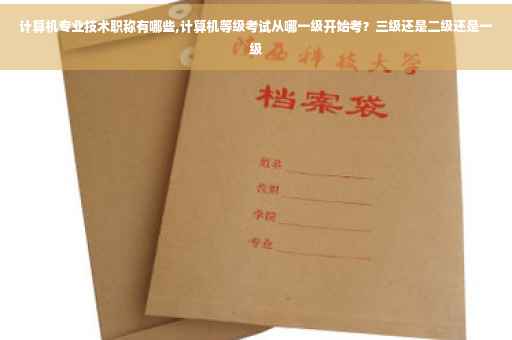 计算机专业技术职称有哪些,计算机等级考试从哪一级开始考？三级还是二级还是一
级
西科技大学
档案袋
姓名
学院
专业